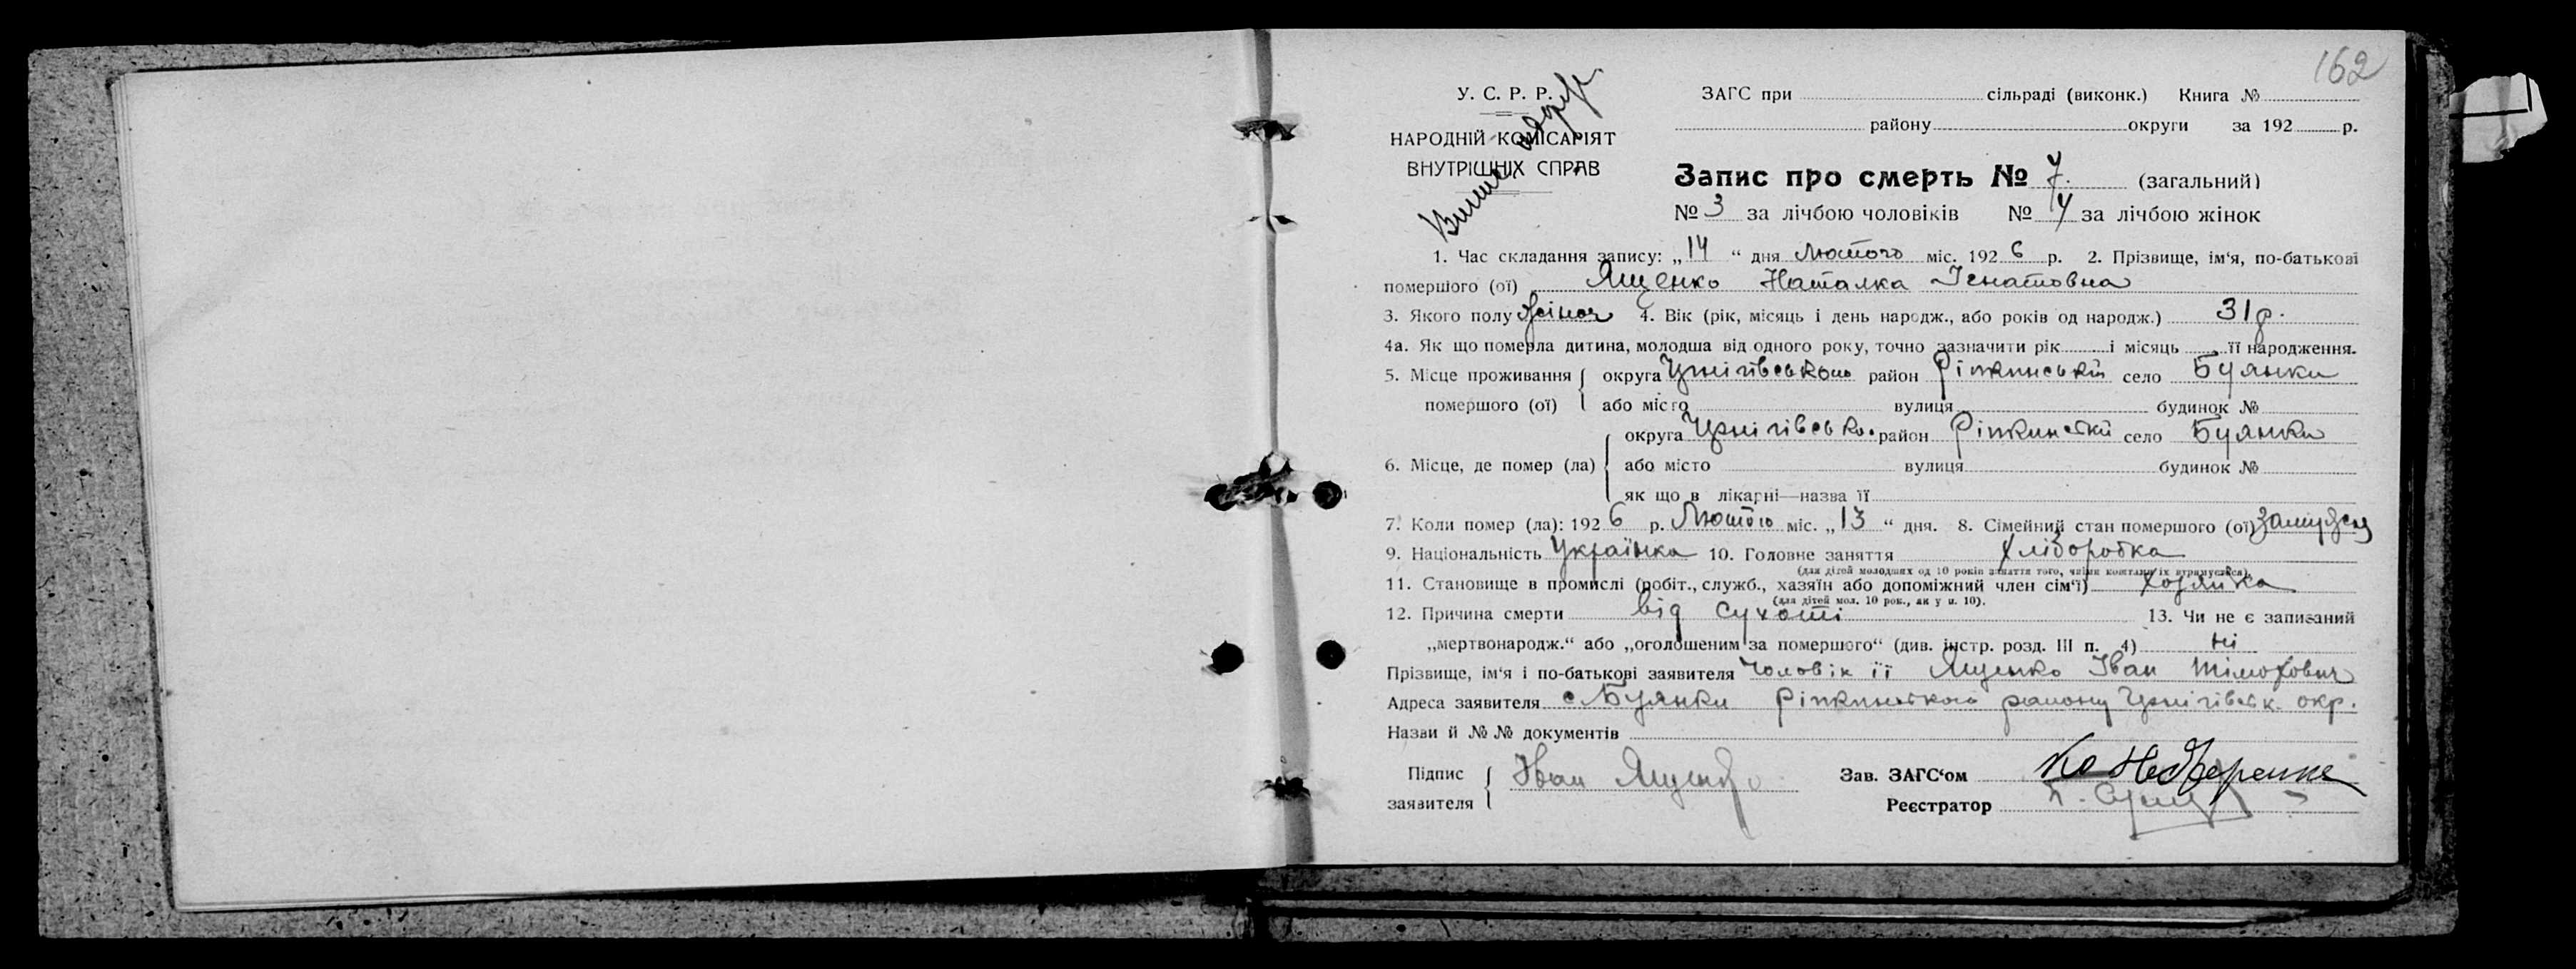 162
У. С. Р. Р.
НАРОДНІЙ КОМІСАРІЯТ
ВНУТРІШНІХ СПРАВ
ЗАГС при сільраді (виконк.) Книга №
району округи за 192 р.
Запис про смерть № 7. (загальний)
№ 3 за лічбою чоловіків № 4 за лічбою жінок
1. Час складання запису: „14“ дня Лютого міс. 1926 р. 2. Прізвище, ім‘я, по-батькові
помершого (ої) Ященко Наталка Ігнатовна
3. Якого полу жіноч 4. Вік (рік, місяць і день народж., або років од народж.) 31 р.
4а. Як що померла дитина, молодша від одного року, точно зазначити рік і місяць її народження.
5. Місце проживання округа Чрнігівського район Ріпкинській село Буянки
помершого (ої) або місто вулиця будинок №
округа Чрнігівсько. район Ріпкинскій село Буянки
6. Місце, де помер (ла) або місто вулиця будинок №
як що в лікарні—назва її
7. Коли помер (ла): 1926 р. Лютого міс. „13“ дня. 8. Сімейний стан помершого (ої) замужня
9. Національність Українка 10. Головне заняття хліборобка
(для дітей молодших од 10 років заняття того, чиїми коштами їх втримується).
11. Становище в промислі (робіт., служб., хазяїн або допоміжний член сім‘ї) хозяйка
(для дітей мол. 10 рок., як у п. 10).
12. Причина смерти від сухоті 13. Чи не є записаний
„мертвонародж.“ або „оголошеним за помершого“ (див. інстр. розд. III п. 4) Ні
Прізвище, ім‘я і по-батькові заявителя Чоловік її Ященко Іван Тімохович
Адреса заявителя с Буянки Ріпкинського району Чрнігівськ. окр.
Назви й №№ документів
Підпис заявителя Іван Ященко Зав. ЗАГС‘ом
Реєстратор